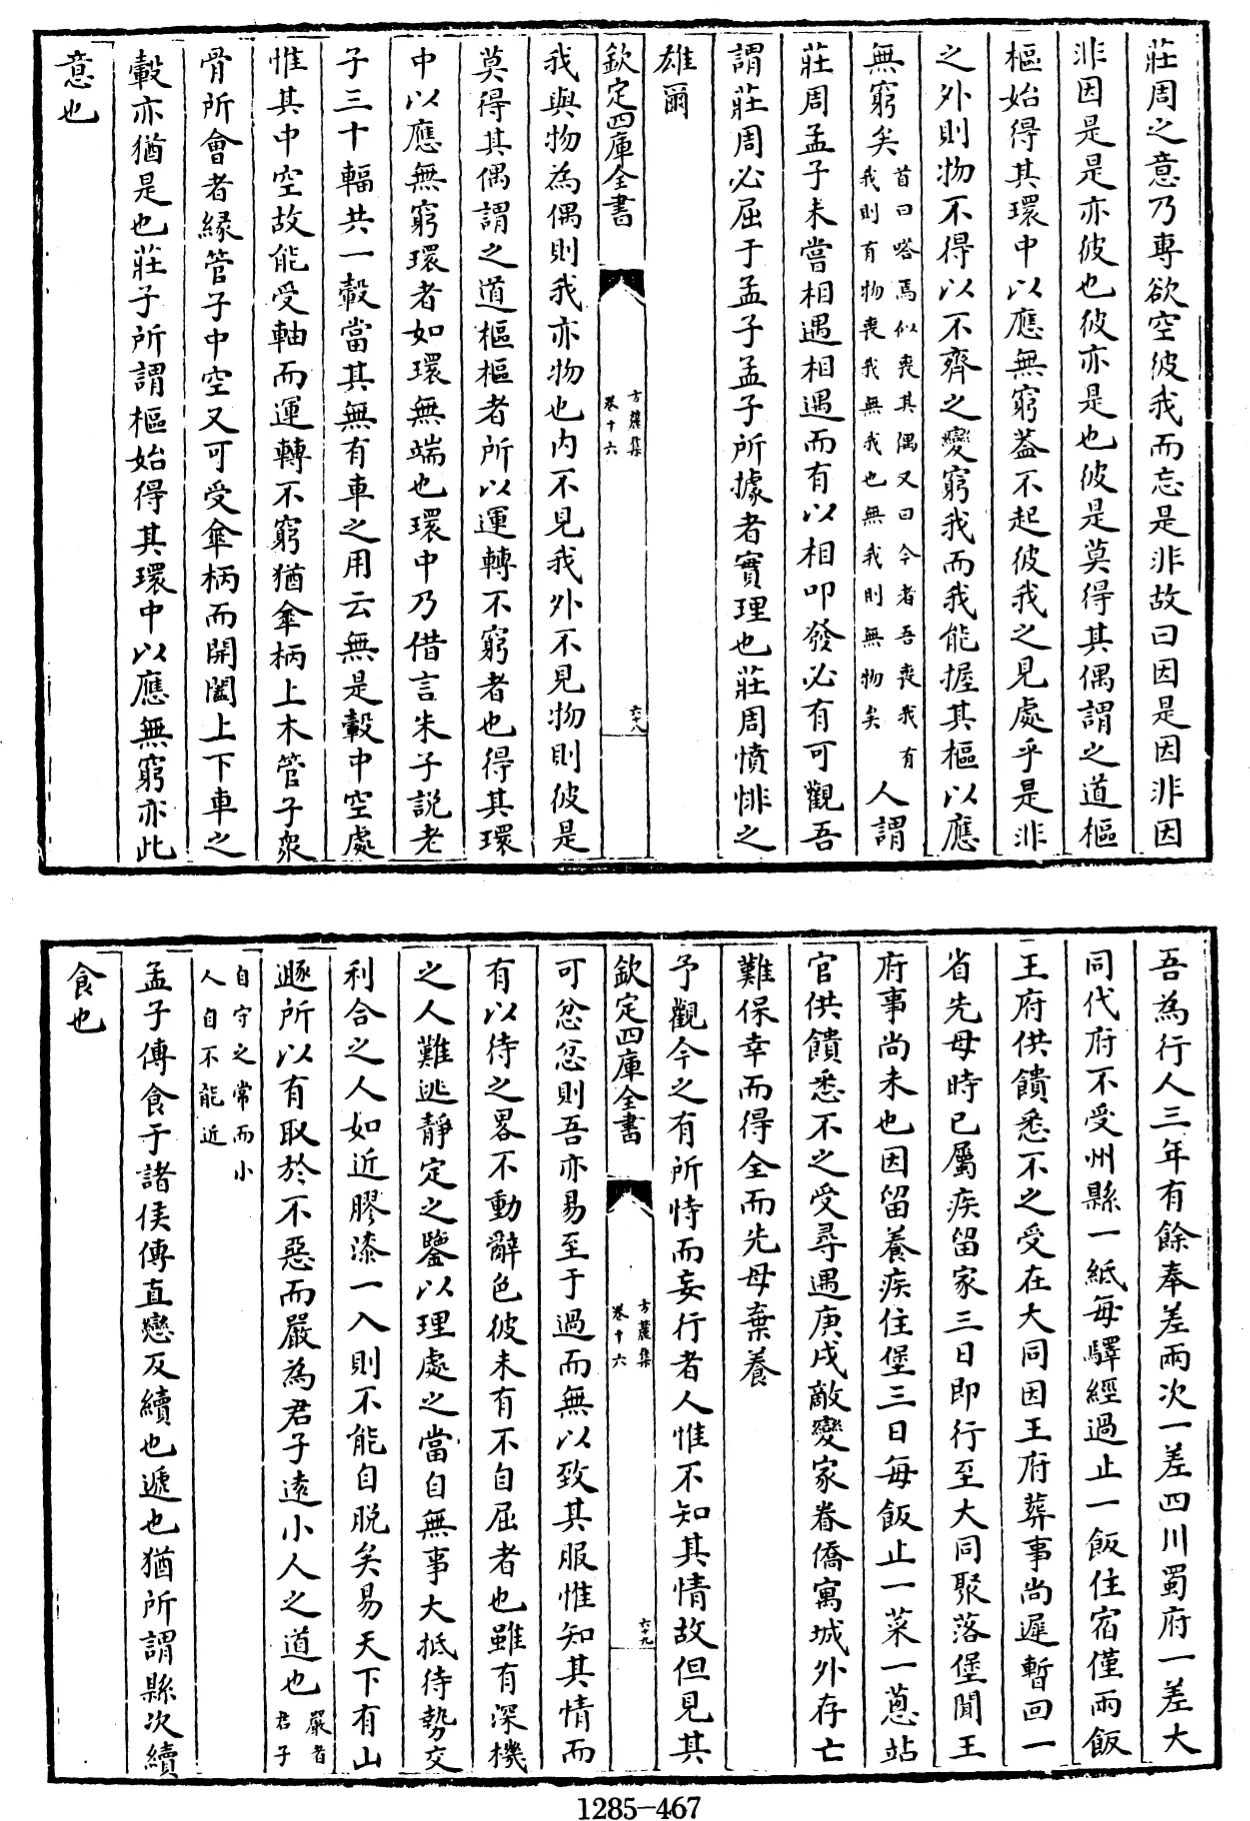 莊周之意乃專欲空彼我而忘是非故曰因是因非因
非因是是亦彼也彼亦是也彼是莫得其偶謂之道樞
樞始得其環中以應無窮葢不起彼我之見處乎是非
之外則物不得以不齊之變窮我而我能握其樞以應
無窮矣首曰嗒焉似喪其偶又曰今者吾喪我有我則有物喪我無我也無我則無物矣人謂
莊周孟子未嘗相遇相遇而有以相叩發必有可觀吾
謂莊周必屈于孟子孟子所據者實理也莊周憤悱之
雄爾
欽定四庫全書
方麓集
卷十六
六十八
我與物為偶則我亦物也内不見我外不見物則彼是
莫得其偶謂之道樞樞者所以運轉不窮者也得其環
中以應無窮環者如環無端也環中乃借言朱子説老
子三十輻共一轂當其無有車之用云無是轂中空處
惟其中空故能受軸而運轉不窮猶傘柄上木管子衆
骨所會者緣管子中空又可受傘柄而開闔上下車之
轂亦猶是也莊子所謂樞始得其環中以應無窮亦此
意也
吾為行人三年有餘奉差兩次一差四川蜀府一差大
同代府不受州縣一紙每驛經過止一飯住宿僅兩飯
王府供饋悉不之受在大同因王府葬事尚遲暫回一
省先母時已屬疾留家三日即行至大同聚落堡聞王
府事尚未也因留養疾住堡三日每飯止一菜一蔥站
官供饋悉不之受尋遇庚戌敵變家眷僑寓城外存亡
難保幸而得全而先母棄養
予觀今之有所恃而妄行者人惟不知其情故但見其
欽定四庫全書
方麓集
卷十六
六十九
可忿忿則吾亦易至于過而無以致其服惟知其情而
有以待之畧不動辭色彼未有不自屈者也雖有深機
之人難逃靜定之鑒以理處之當自無事大抵待勢交
利合之人如近膠漆一入則不能自脱矣易天下有山
遯所以有取於不惡而嚴為君子遠小人之道也嚴者君子
自守之常而小人自不能近
孟子傳食于諸侯傳直戀反續也遞也猶所謂縣次續
食也
1285-467